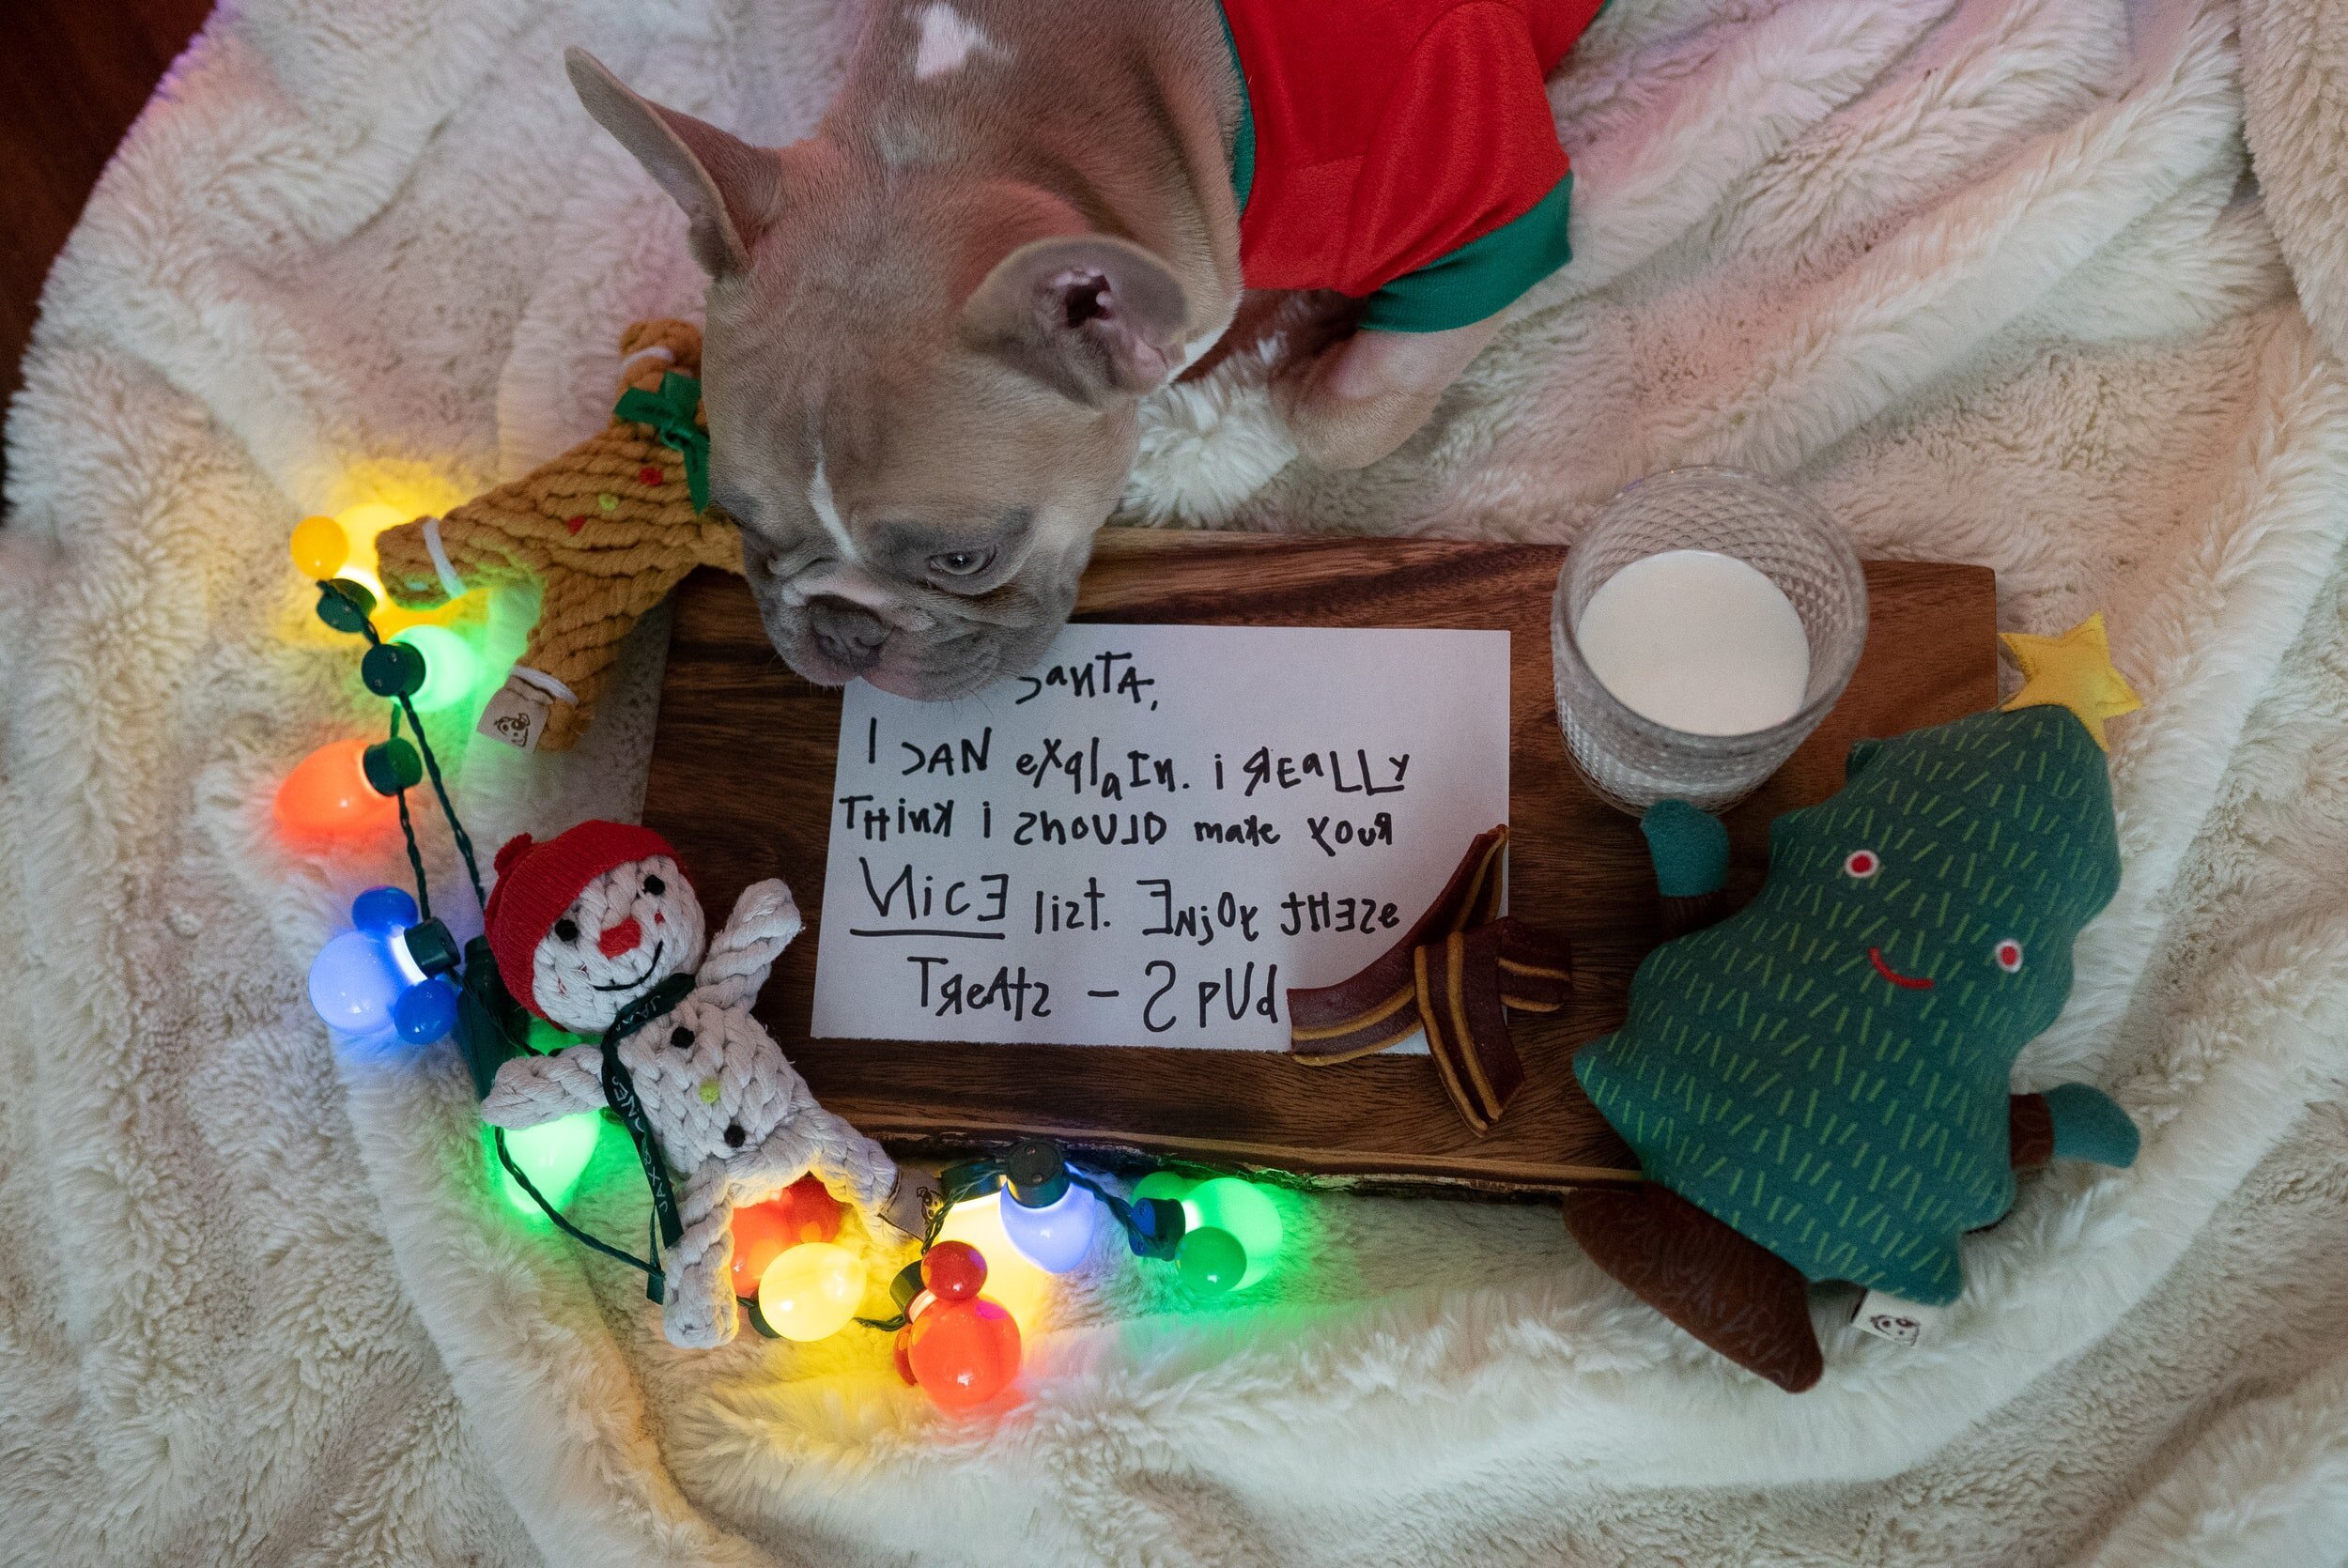 Santa,
I CAN explain. i REaLLY
THink i shoULD make your
NicE list. Enjoy tHEse
TReAts - SpUd
JAX & BONES